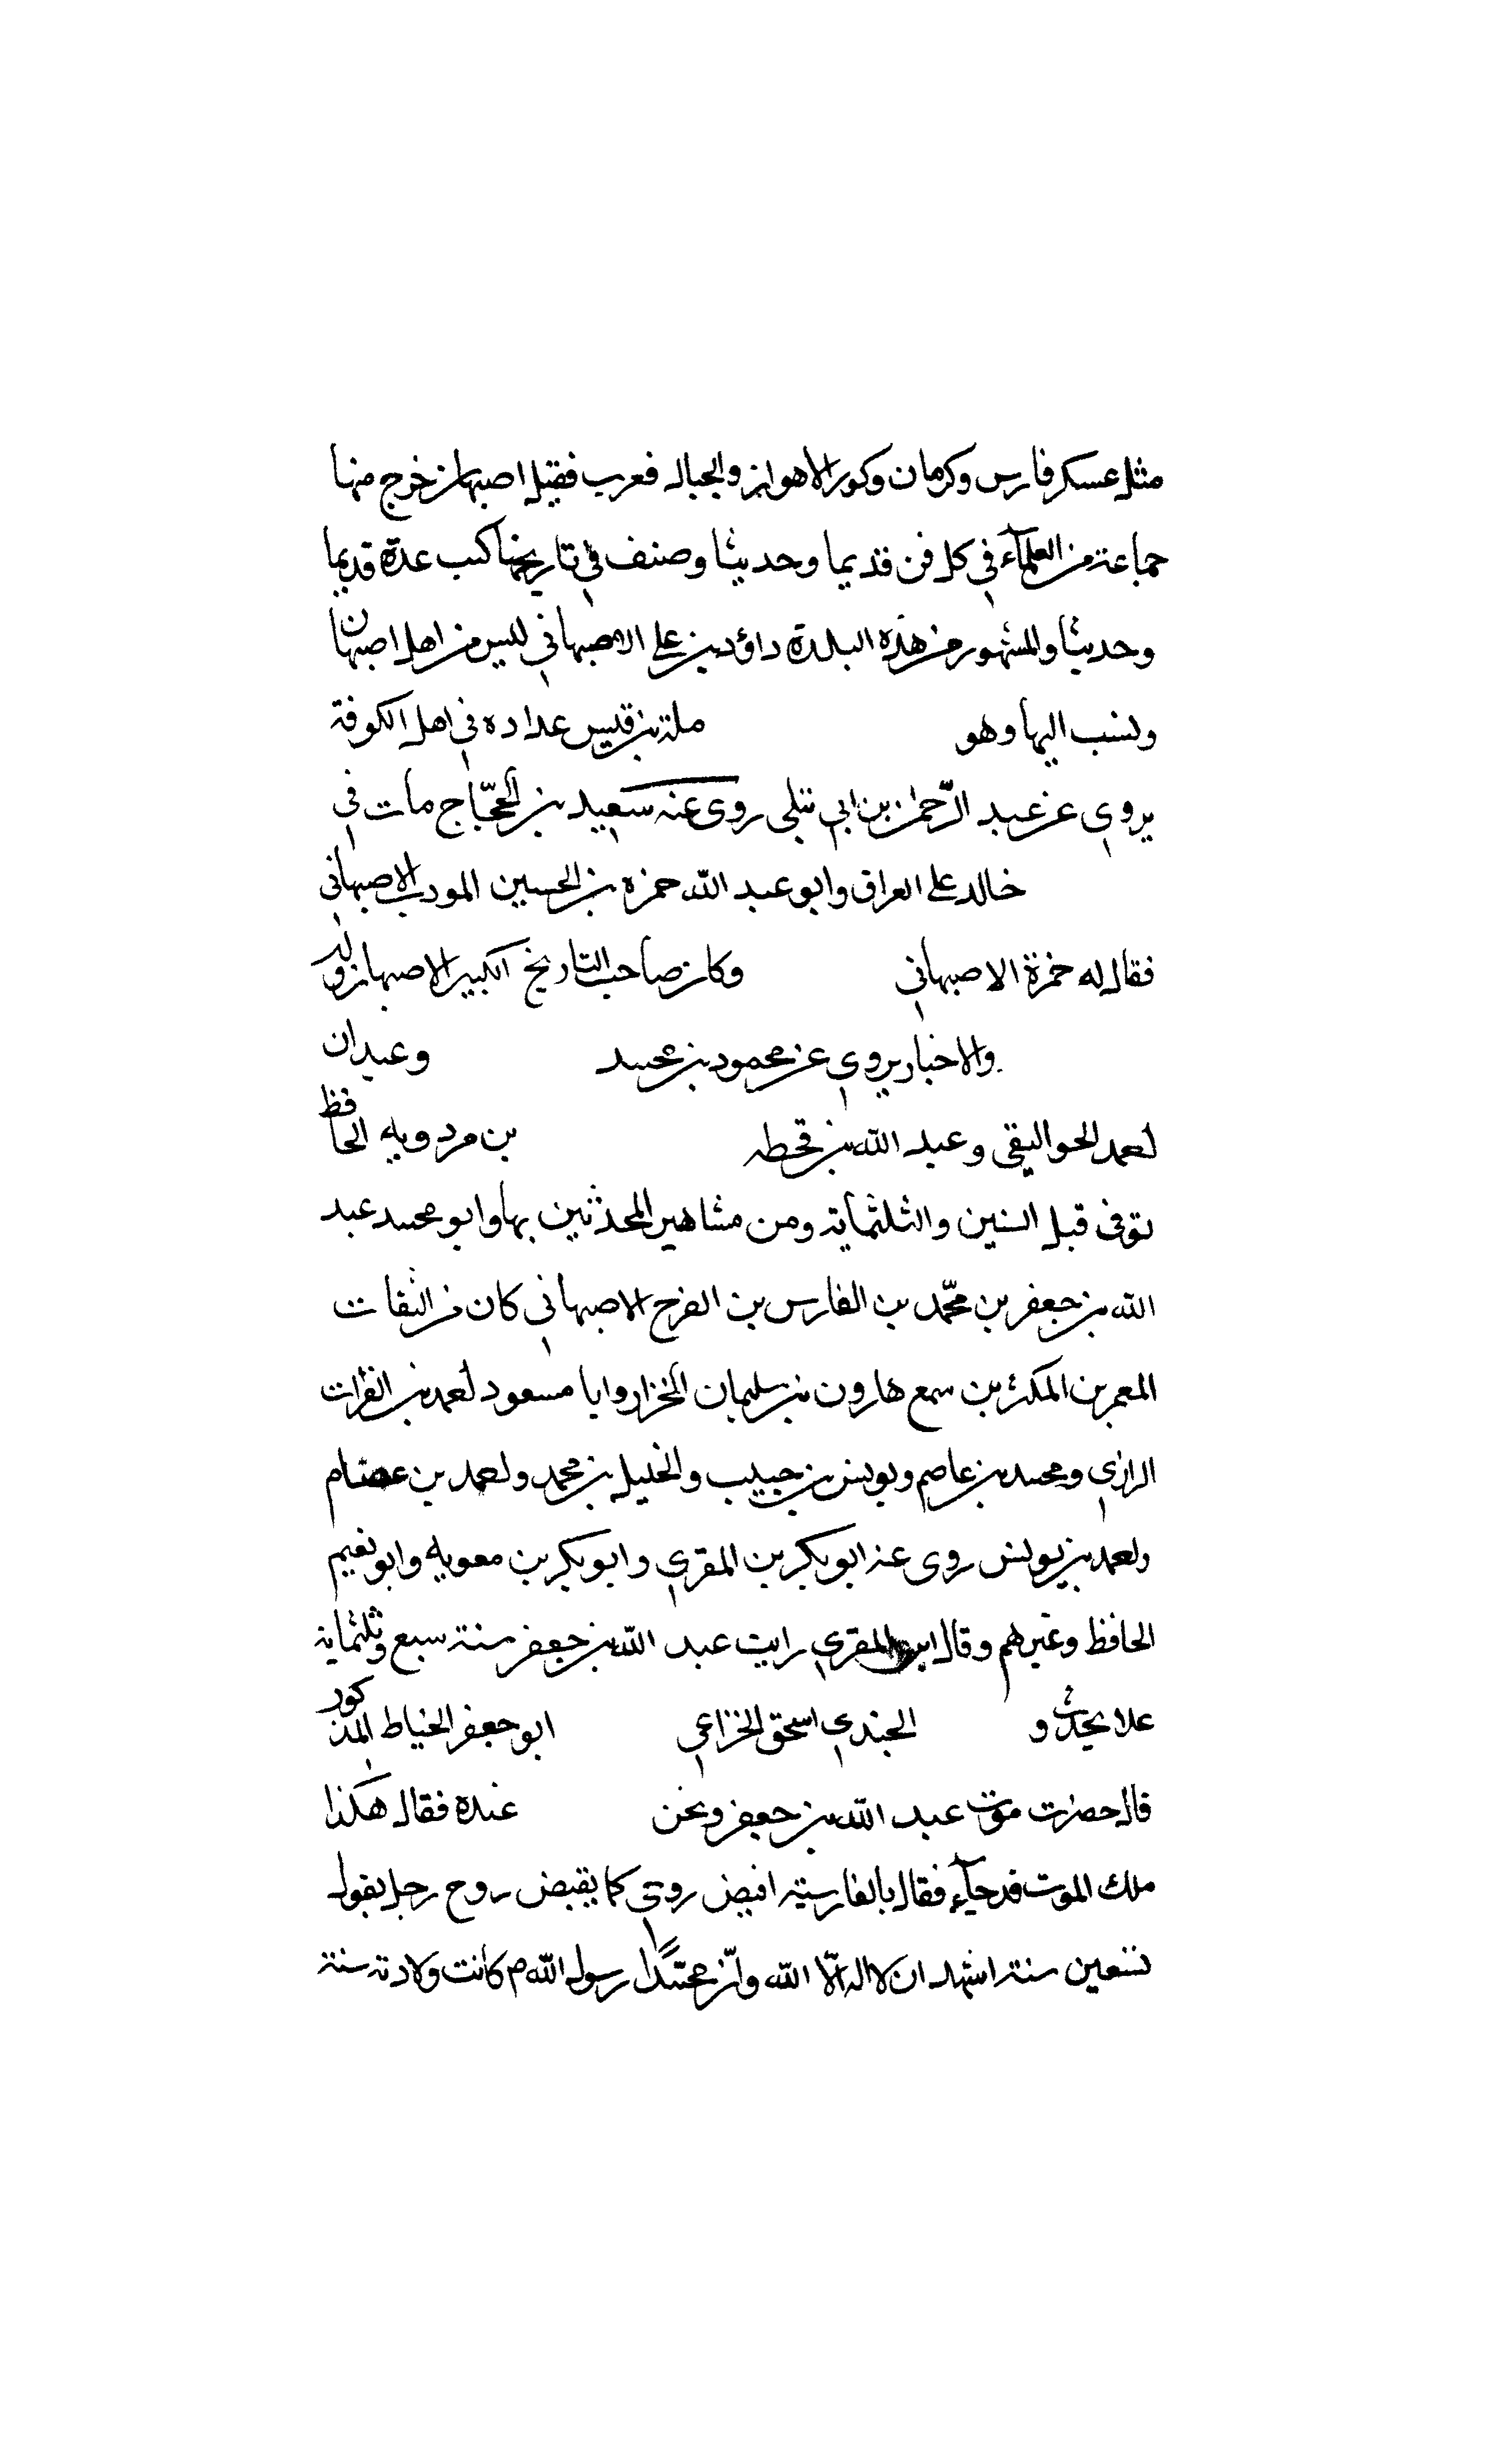 مثل عسكر فارس وكرمان وكور الاهواز والجبال فعرب فقيل اصبهان خرج منها
جماعة من العلمآء في كل فن قديما وحديثا وصنف في تاريخها كتب عدة قديما
وحديثا والمشهور من هذه البلدة داؤد بن علي الاصبهاني ليس من اهل اصبهان
ونسب اليها وهو ملة بن قيس عداده في اهل الكوفة
يروي عن عبد الرّحمن بن ابي ليلى روى عنه سعيد بن الحجّاج مات في
خالد على العراق وابو عبد الله حمزه بن الحسين المودب الاصبهاني
فقال له حمزة الاصبهاني وكان صاحب التاريخ الكبير الاصبهان وله
والاخبار يروي عن محمود بن محمد وعبدان
احمد الجواليقي وعبد الله بن قحطبه بن مردويه الحافظ
توفى قبل الستين والثلثماية ومن مشاهير المحدثين بها وابو محمد عبد
الله بن جعفر بن محمّد بن الفارس بن الفرج الاصبهاني كان من الثقات
المعمرين المكثرين سمع هارون بن سليمان الخزاز وابا مسعود احمد بن الفرات
الرازي ومحمد بن عاصم ويونس بن حبيب والخليل بن محمد واحمد بن عصام
واحمد بن يونس روى عنه ابو بكر بن المقري وابو بكر بن معويه وابو نعيم
الحافظ وغيرهم وقال ابن المقري رايت عبد الله بن جعفر سنة سبع وثلثماية
علا يحدث و الجندي اسحق الخزاعي ابو جعفر الخياط المذكور
قال حضرت موت عبد الله بن جعفر ونحن عنده فقال هكذا
ملك الموت قد جآء فقال بالفارسية اقبض روحي كما يقبض روح رجل يقول
تسعين سنة اشهد ان لا اله الّا الله وانّ محمّدا رسول الله م كانت ولادته سنة